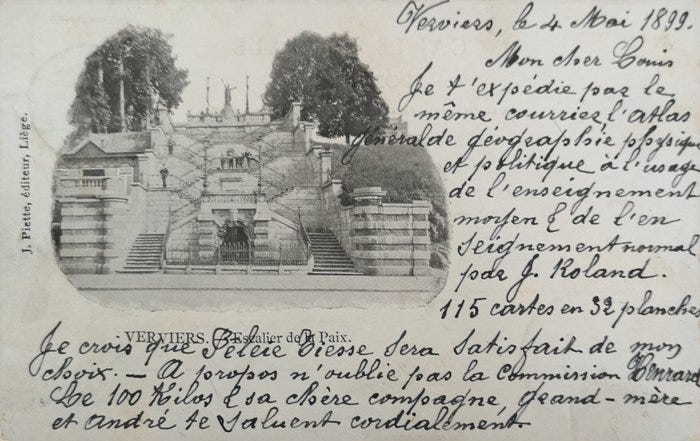 Verviers, le 4 Mai 1899.
Mon cher Louis
Je t'expédie par le
même courrier l'atlas
général de géographie physique
et politique à l'usage
de l'enseignement
moyen & de l'en
seignement normal
par J. Roland.
115 cartes en 32 planches
J. Piette, éditeur, Liège.
VERVIERS. Escalier de la Paix.
Je crois que sera satisfait de mon
choix. — A propos n'oublie pas la commission Henrard
Le 100 Kilos & sa chère compagne grand-mère
et André te saluent cordialement